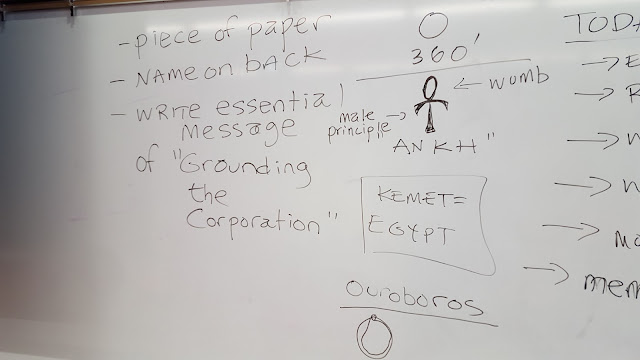 - piece of paper
- NAME on bACK
- WRITE essential
message
of "Grounding
the
Corporation"
360'
← womb
male →
principle
"ANKH"
KEMET =
EGYPT
ouroboros